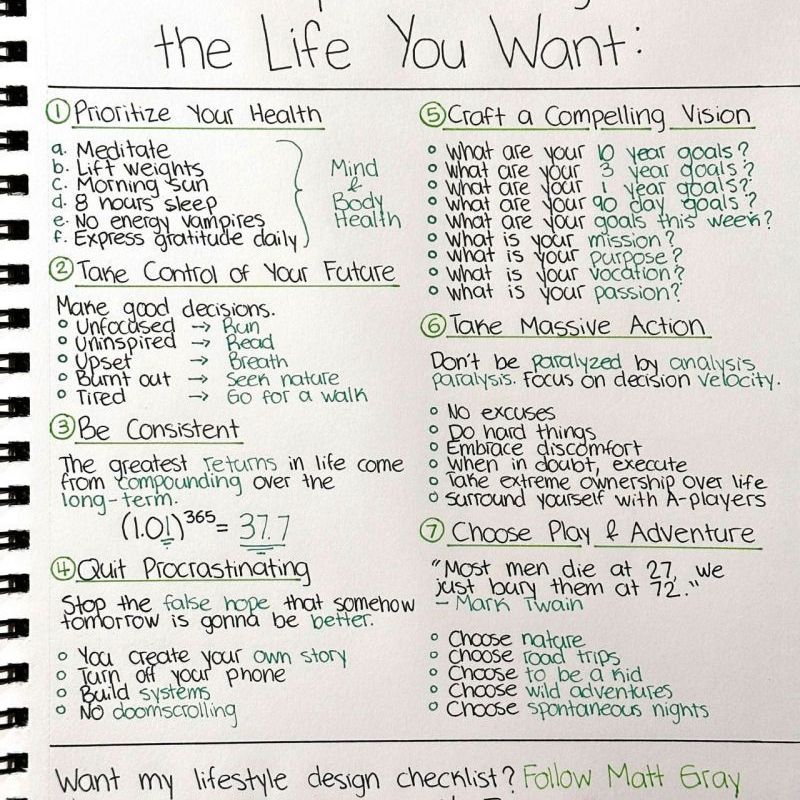 the Life You Want:
① Prioritize Your Health
a. Meditate
b. Lift weights
c. Morning sun
d. 8 hours sleep
e. No energy vampires
f. Express gratitude daily
Mind
&
Body
Health
② Take Control of Your Future
Make good decisions.
Unfocused → Run
Uninspired → Read
Upset → Breath
Burnt out → Seek nature
Tired → Go for a walk
③ Be Consistent
The greatest returns in life come
from compounding over the
long-term.
(1.01)³⁶⁵ = 37.7
④ Quit Procrastinating
Stop the false hope that somehow
tomorrow is gonna be better.
You create your own story
Turn off your phone
Build systems
No doomscrolling
⑤ Craft a Compelling Vision
What are your 10 year goals?
What are your 3 year goals?
What are your 1 year goals?
What are your 90 day goals?
What are your goals this week?
What is your mission?
What is your purpose?
What is your vocation?
What is your passion?
⑥ Take Massive Action
Don't be paralyzed by analysis
paralysis. Focus on decision velocity.
No excuses
Do hard things
Embrace discomfort
When in doubt, execute
Take extreme ownership over life
Surround yourself with A-players
⑦ Choose Play & Adventure
"Most men die at 27, we
just bury them at 72."
- Mark Twain
Choose nature
Choose road trips
Choose to be a kid
Choose wild adventures
Choose spontaneous nights
Want my lifestyle design checklist? Follow Matt Gray